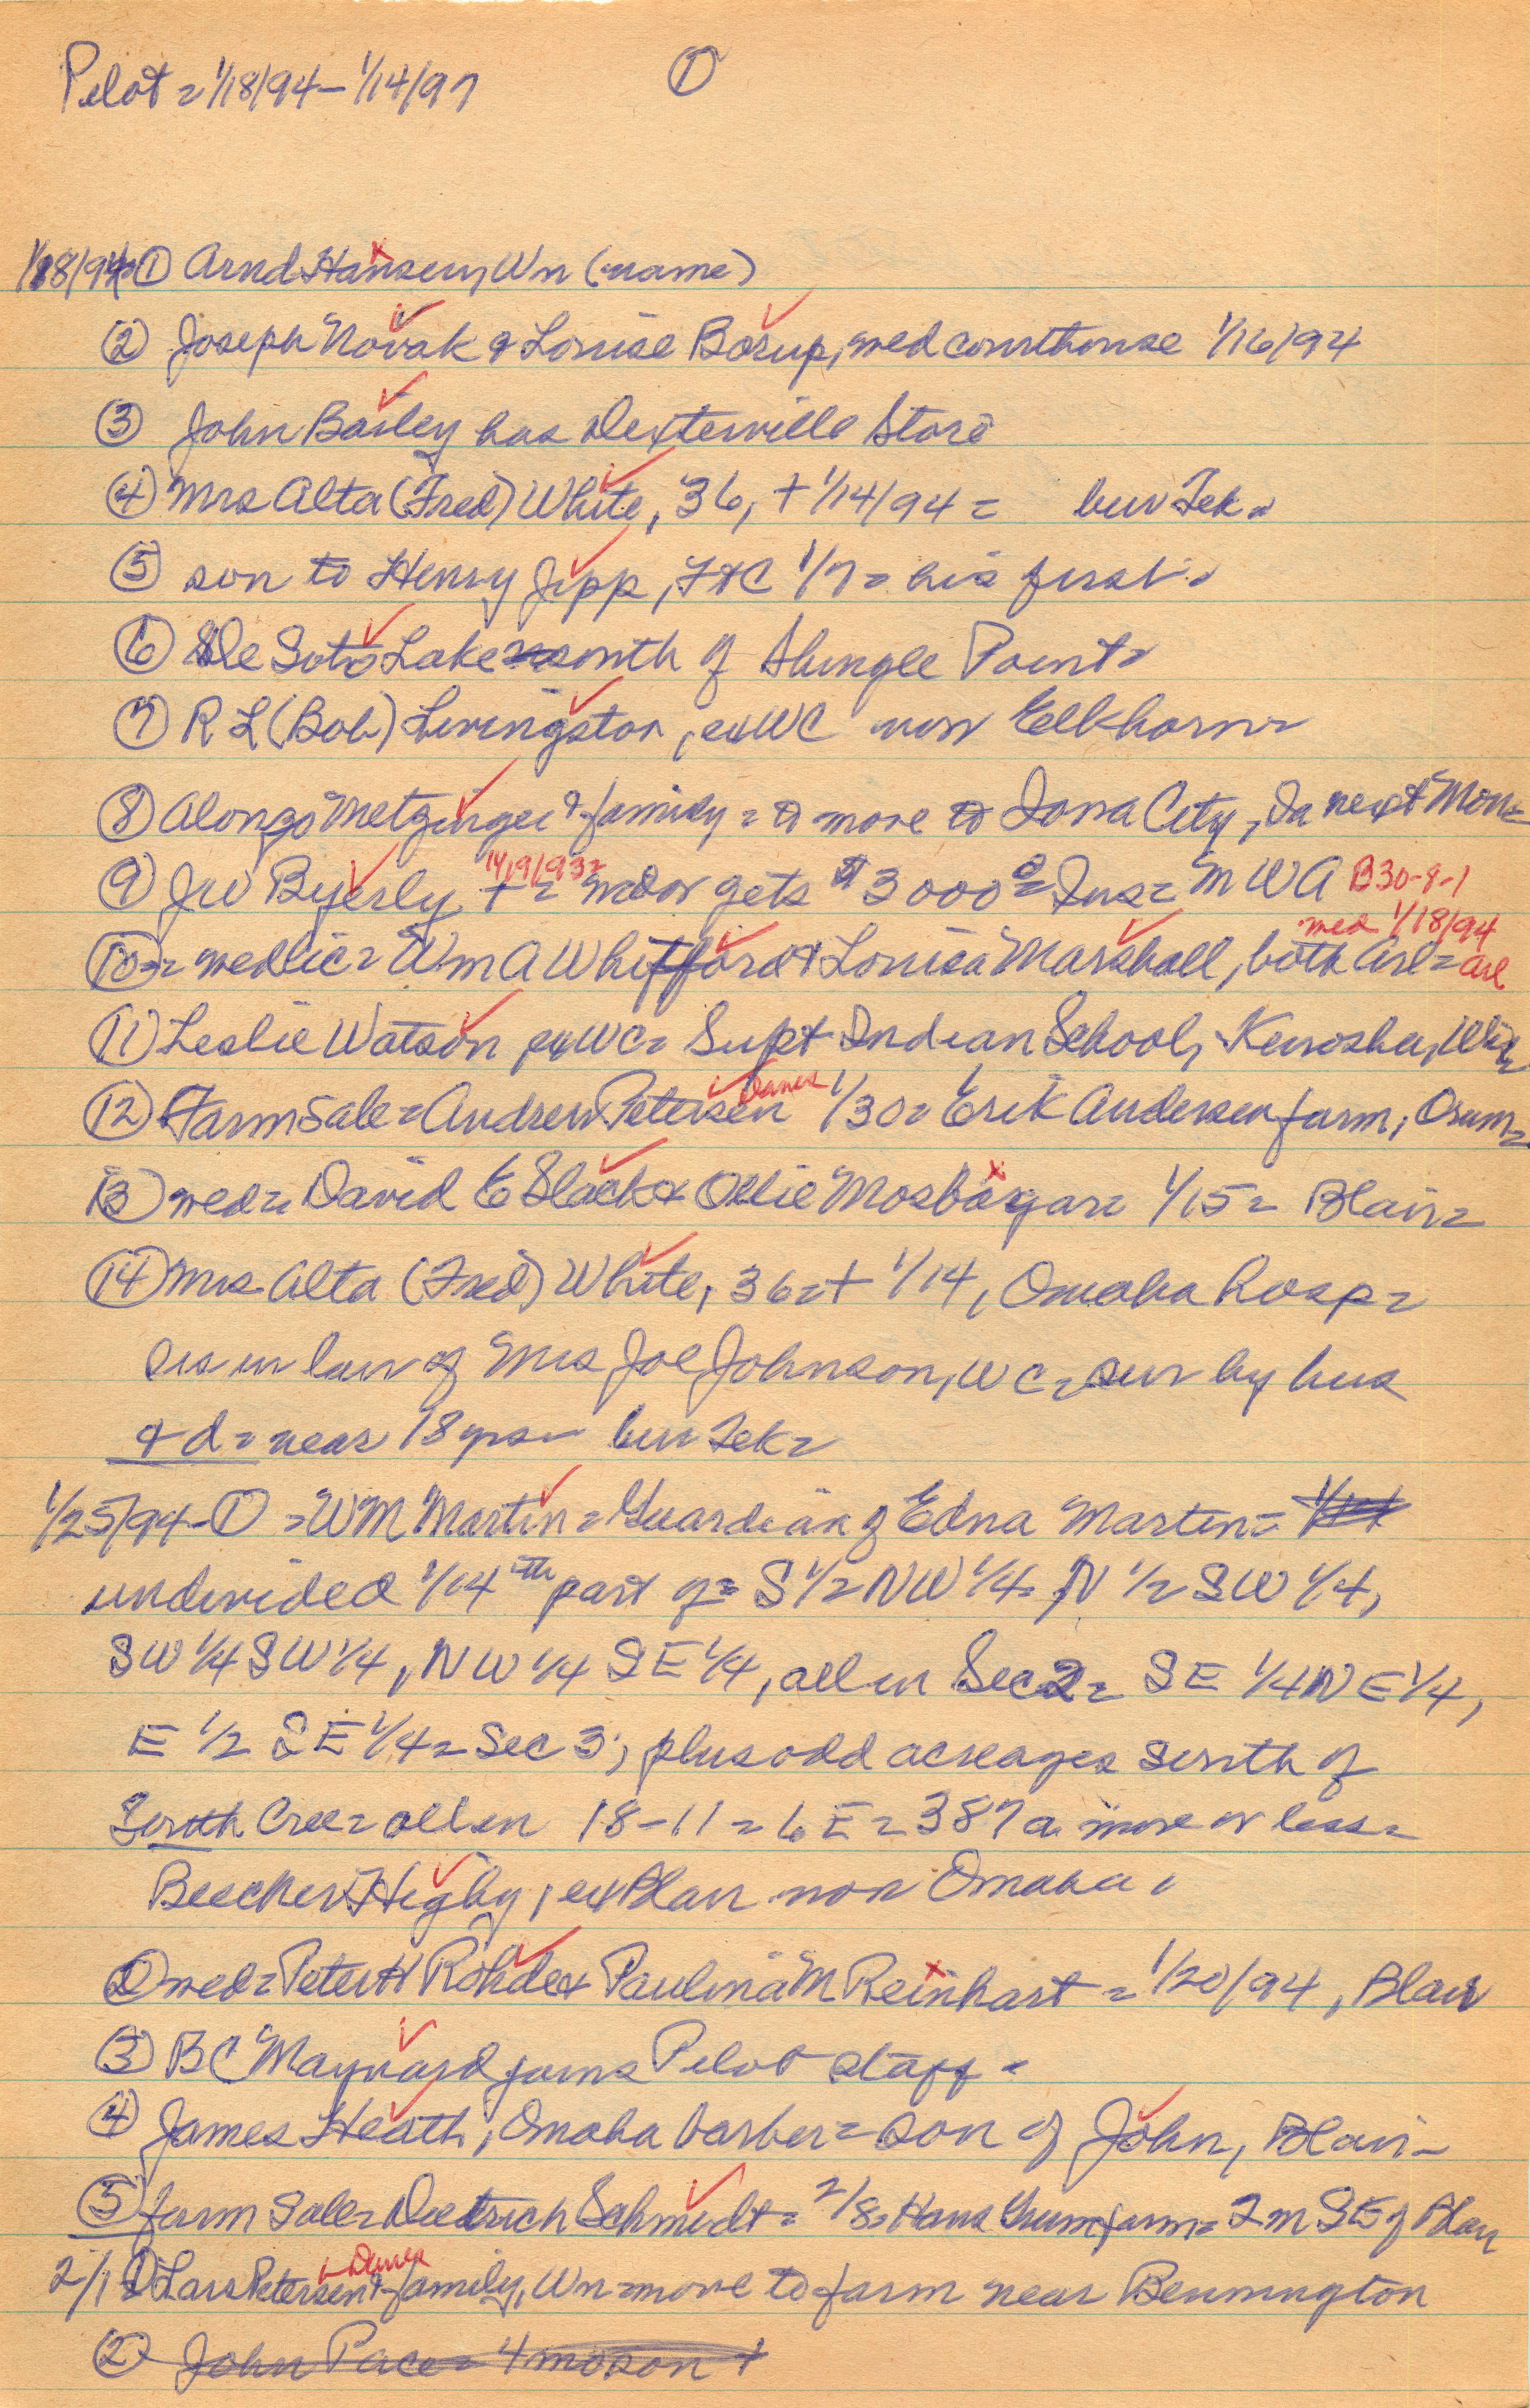 Pilot = 1/18/94 – 1/14/97 ①
1/18/94 ① Arnd Hansen, Wn (name)
② Joseph Novak & Louise Borup, wed courthouse 1/16/94
③ John Bailey has Dexterville Store
④ Mrs Alta (Fred) White, 36, + 1/14/94 = bur Tek =
⑤ son to Henry Jipp, FtC 1/7 = his first =
⑥ De Soto Lake south of Shingle Point =
⑦ R L (Bob) Livingston, exWC now Elkhorn =
⑧ Alonzo Metzinger & family = to move to Iowa City, Ia next Mon =
⑨ JW Byerly + 11/9/93 = = widow gets $3000 = Ins = MWA B30-8-1
⑩ = wed lic = Wm A Whitford & Louisa Marshall, both Arl = wed 1/18/94 Arl
⑪ Leslie Watson, exWC = Supt Indian School, Kenosha, Wis
⑫ Farm Sale = Andrew Petersen Danes 1/30 = Erik Andersen farm, Orum =
⑬ wed = David E Slack & Ollie Mosbagar = 1/15 = Blair =
⑭ Mrs Alta (Fred) White, 36 = + 1/14, Omaha hosp =
sis in law of Mrs Joe Johnson, WC = sur by hus
& d = near 18 yrs = bur Tek =
1/25/94 – ① = WM Martin = Guardian of Edna Martin =
undivided 1/14th part of = S 1/2 NW 1/4, N 1/2 SW 1/4,
SW 1/4 SW 1/4, NW 1/4 SE 1/4, all in Sec 2 = SE 1/4 NE 1/4,
E 1/2 SE 1/4 = Sec 3, plus odd acreages south of
South Cree = all in 18-11 = 6E = 387 a more or less =
Beecher Higby, exBlair now Omaha
② wed = Peter H Rohde & Paulina M Reinhart = 1/20/94, Blair
③ BC Maynard joins Pilot staff =
④ James Heath, Omaha barber = son of John, Blair –
⑤ farm Sale = Diedrich Schmidt = 2/8 = Hans farm = 2 m SE of Blair
2/1 ① Lars Petersen Danes & family, Wn = move to farm near Bennington
② John Pace = 4 mo son +